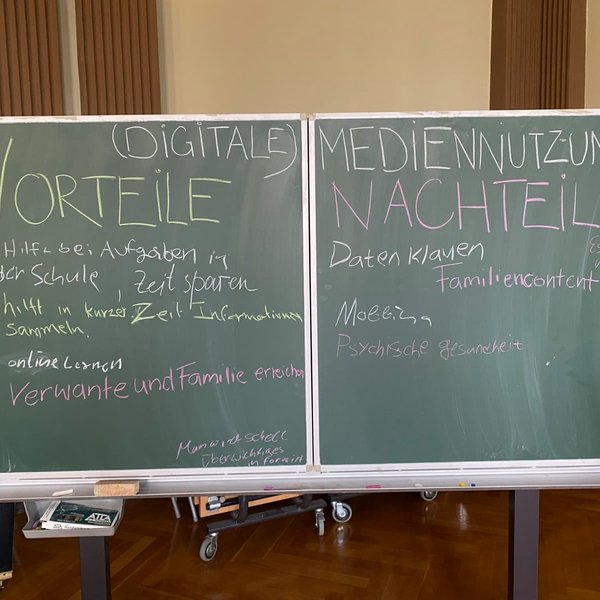 (DIGITALE) MEDIENNUTZUN
VORTEILE
Hilfe bei Aufgaben in
der Schule, Zeit sparen
hilft in kurzer Zeit Informationen
sammeln.
online Lernen
Verwante und Familie erreichen
Man wird schell
überwichtiges
informirt
NACHTEIL
Daten klauen
Familiencontent
Mobbing
Psychische gesundheit
ATA